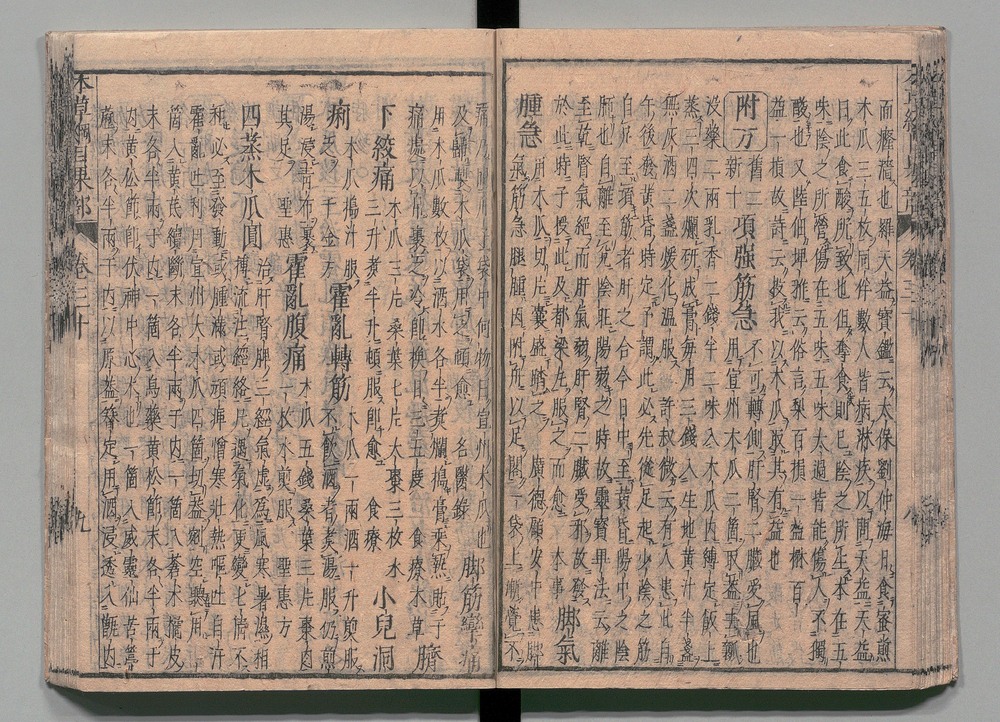 而癃澁也羅天益寶鑑云太保劉仲海日食蜜煎
木瓜三五枚同伴數人皆病淋疾以問天益天益
曰此食酸所致也但奪食則已陰之所生本在五
味陰之所營傷在五味五味太過皆能傷人不獨
酸也又陸佃埤雅云俗言梨百損一益楙百
益一損故詩云投我以木瓜取其有益也
附方 舊二新十 項強筋急 不可轉側肝腎二臟受風也
用宣州木瓜二箇取蓋去瓤
没藥二兩乳香二錢半二味入木瓜内縛定飯上
蒸三四次爛研成膏每用三錢入生地黄汁半盞
無灰酒二盞煖化温服許叔微云有人患此自
午後發黄昏時定予謂此必先從足起少陰之筋
自足至項筋者肝之合今日中至黄昏陽中之陰
肺也自離至兌陰旺陽弱之時故靈寶畢法云離
至乾腎氣絶而肝氣弱肝腎二臟受邪故發
於此時予授此及都梁丸服之而愈 本事 脚氣
腫急 用木瓜切片囊盛踏之廣德顧安中患脚
氣筋急腿腫因附舟以足閣一袋上漸覺不
痛 袋中何物曰宣州木瓜也
及歸製木瓜袋用之頓愈 名醫録 脚筋攣痛
用木瓜數枚以酒水各半煮爛搗膏乘熱貼于
痛處以帛裹之冷即換日三五度 食療本草 臍
下絞痛 木瓜三片桑葉七片大棗三枚水
三升煮半升頓服即愈 食療 小兒洞
痢 木瓜搗汁服之千金方 霍亂轉筋 木瓜一兩酒一升煎服
不飲酒者煮湯服仍煎
湯浸青布裹
其足 聖惠 霍亂腹痛 木瓜五錢桑葉三片棗肉
一枚水煎服 聖惠方
四蒸木瓜圓 治肝腎脾三經氣虚為風寒暑濕相
搏流注經絡凡遇氣化更變七情不
和必至發動或腫滿或頑痺憎寒壯熱嘔吐自汗
霍亂吐利用宣州大木瓜四箇切蓋剜空聽用一
箇入黄芪續斷末各半兩于内一箇入蒼朮橘皮
末各半兩于内一箇入烏藥黄松節末各半兩于
内黄松節即伏神中心木也一箇入威靈仙苦葶
藶末各半兩于内以原蓋簪定用酒浸透入甑内
本草綱目果部 卷三十 九